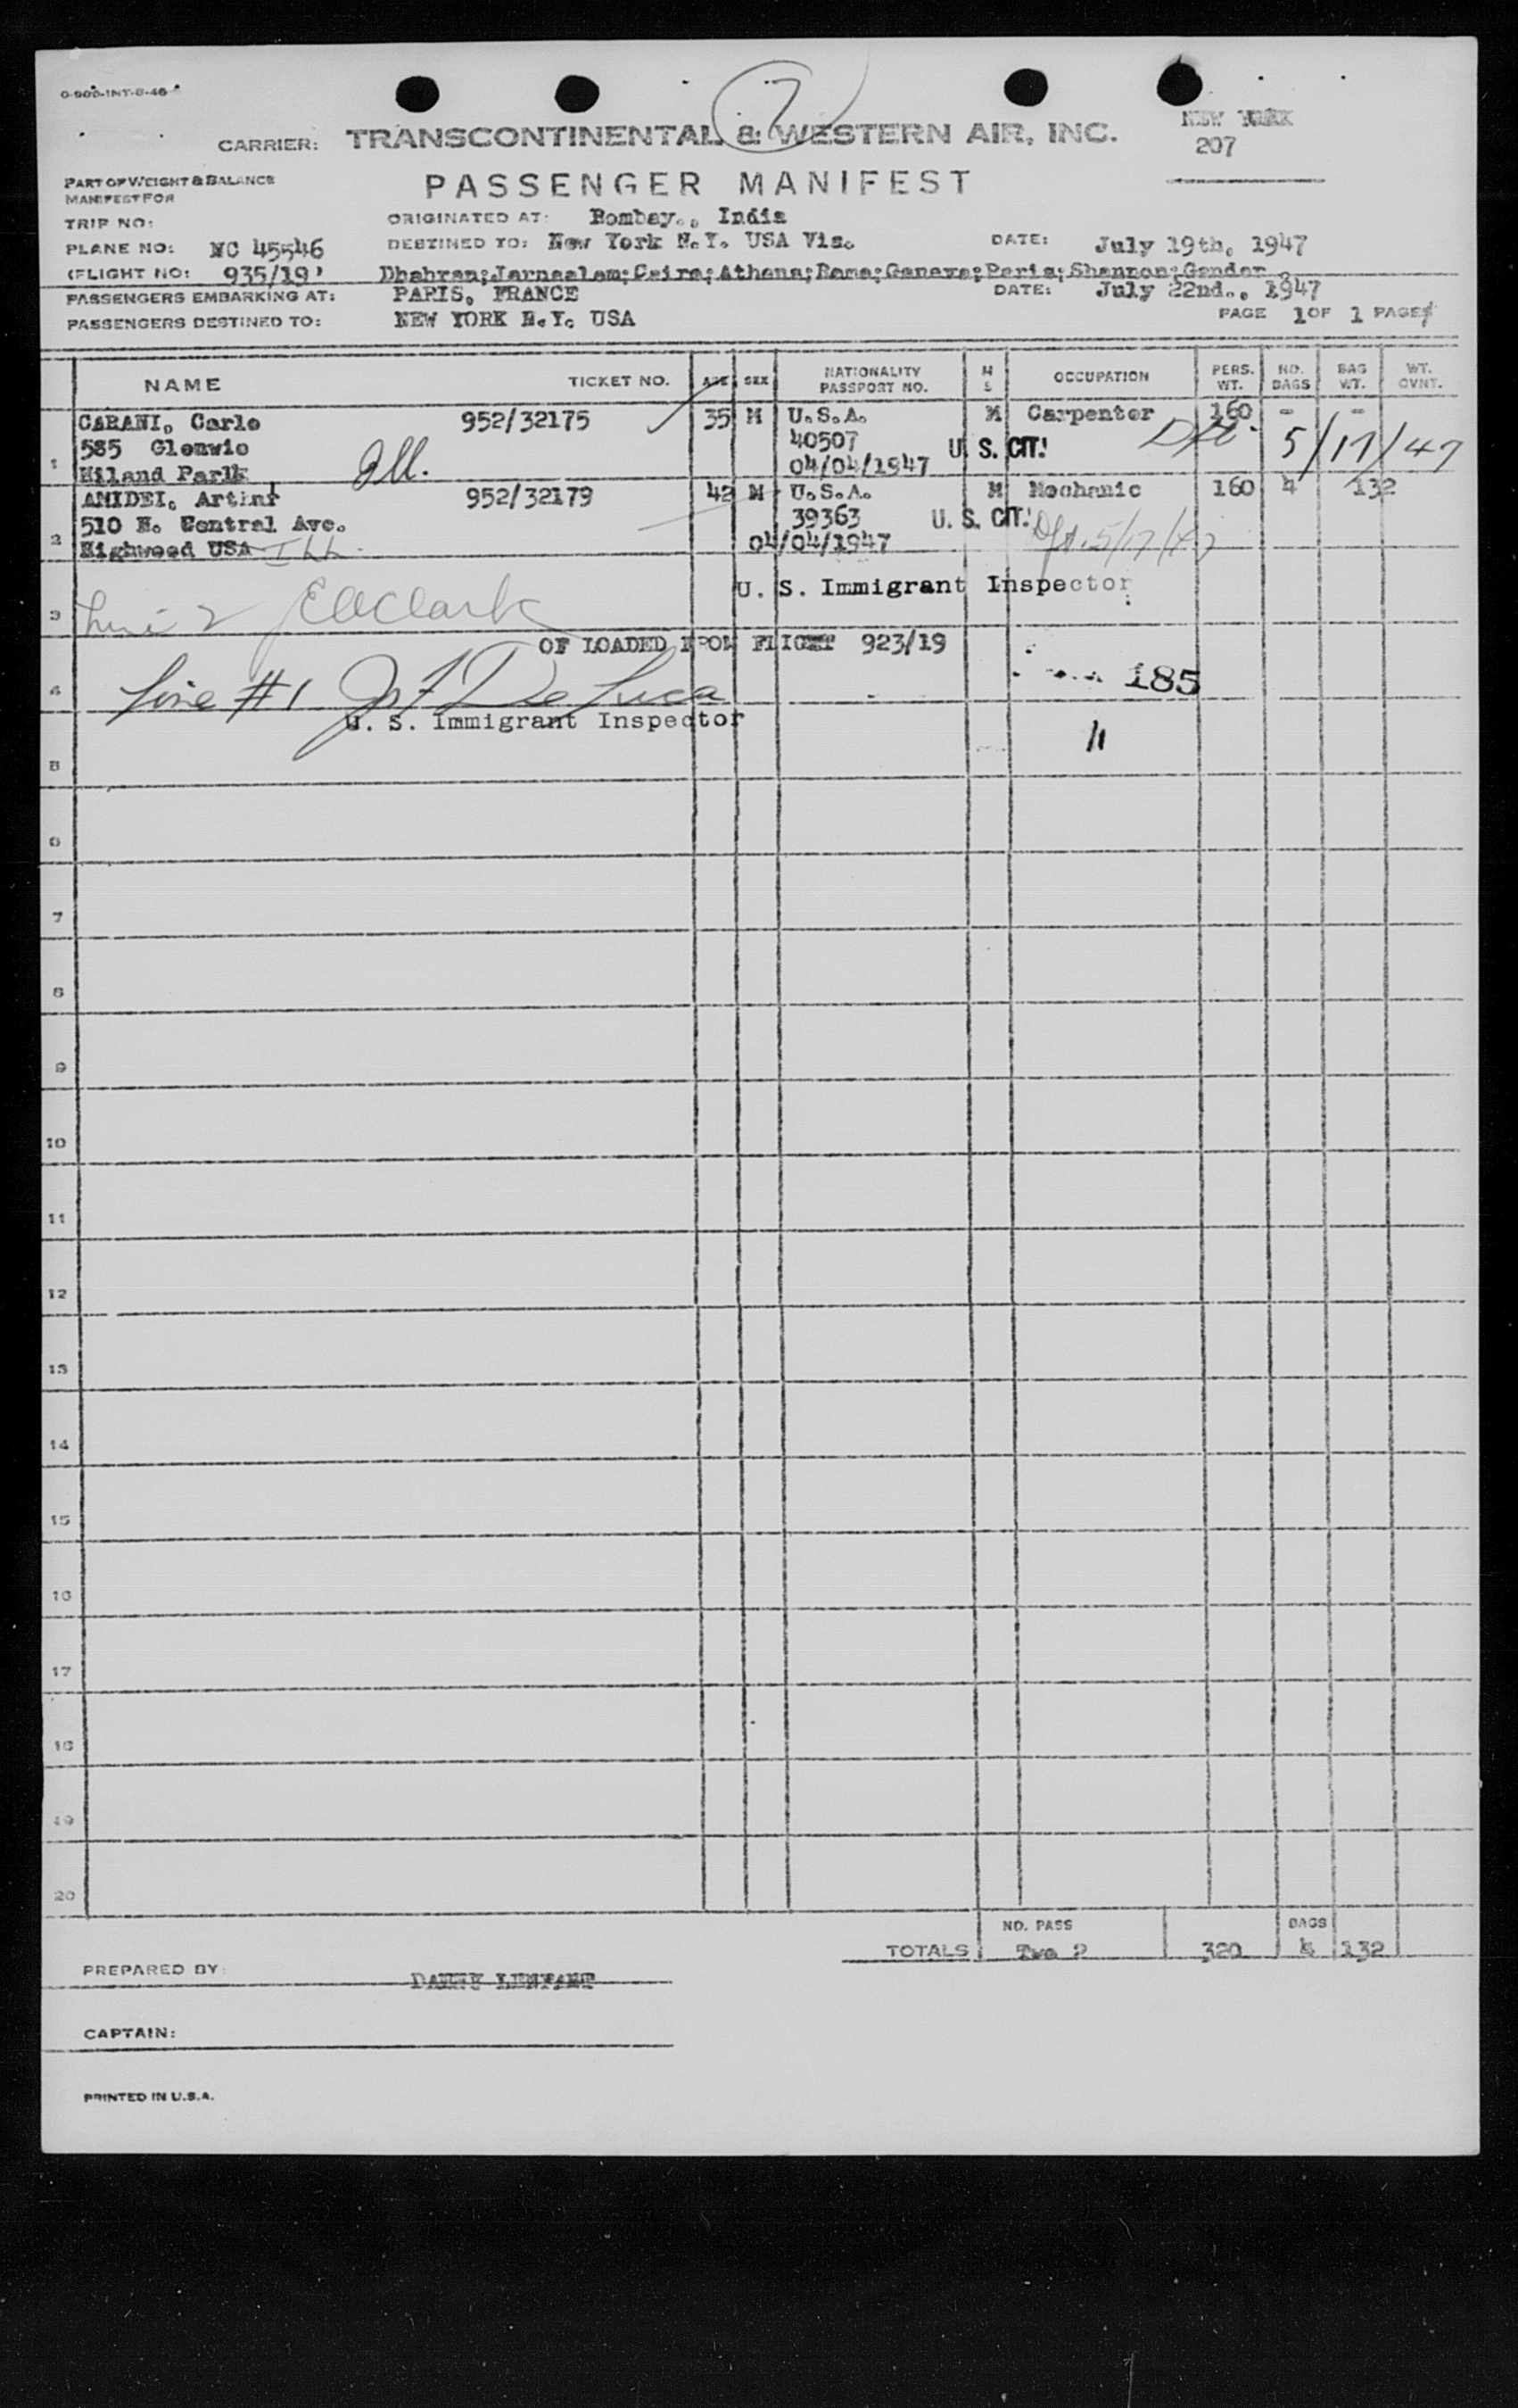 0-900-INT-8-46
7
CARRIER: TRANSCONTINENTAL & WESTERN AIR, INC.
NEW YORK
207
PART OF WEIGHT & BALANCE
MANIFEST FOR
PASSENGER MANIFEST
TRIP NO:
ORIGINATED AT: Bombay., India
PLANE NO: NC 45546
DESTINED TO: New York N.Y. USA Via.
DATE: July 19th, 1947
(FLIGHT NO: 935/19'
Dhahran;Jarnsalem;Cairo;Athens;Rome;Geneva;Paris;Shannon;Gander
PASSENGERS EMBARKING AT: PARIS, FRANCE
DATE: July 22nd., 1947
PASSENGERS DESTINED TO: NEW YORK N.Y. USA
PAGE 1 OF 1 PAGES
NAME TICKET NO. AGE SEX NATIONALITY PASSPORT NO. M S OCCUPATION PERS. WT. NO. BAGS BAG WT. WT. OVNT.
1 CARANI, Carlo 952/32175 35 M U.S.A. M Carpenter 160 - -
585 Glenwio 40507 U. S. CIT. 5/17/47
Hiland Parlk Ill. 04/04/1947
2 AMIDEI, Arthur 952/32179 42 M U.S.A. M Mechanic 160 4 132
510 N. Central Ave. 39363 U. S. CIT. 5/17/47
Highwood USA Ill. 04/04/1947
U. S. Immigrant Inspector
3 Line 2 E Clark
OF LOADED FROM FLIGHT 923/19
185
4 Line #1 Jos F De Luca
U. S. Immigrant Inspector
11
5
6
7
8
9
10
11
12
13
14
15
16
17
18
19
20
TOTALS NO. PASS Two 2 320 BAGS 4 132
PREPARED BY:
CAPTAIN:
PRINTED IN U.S.A.